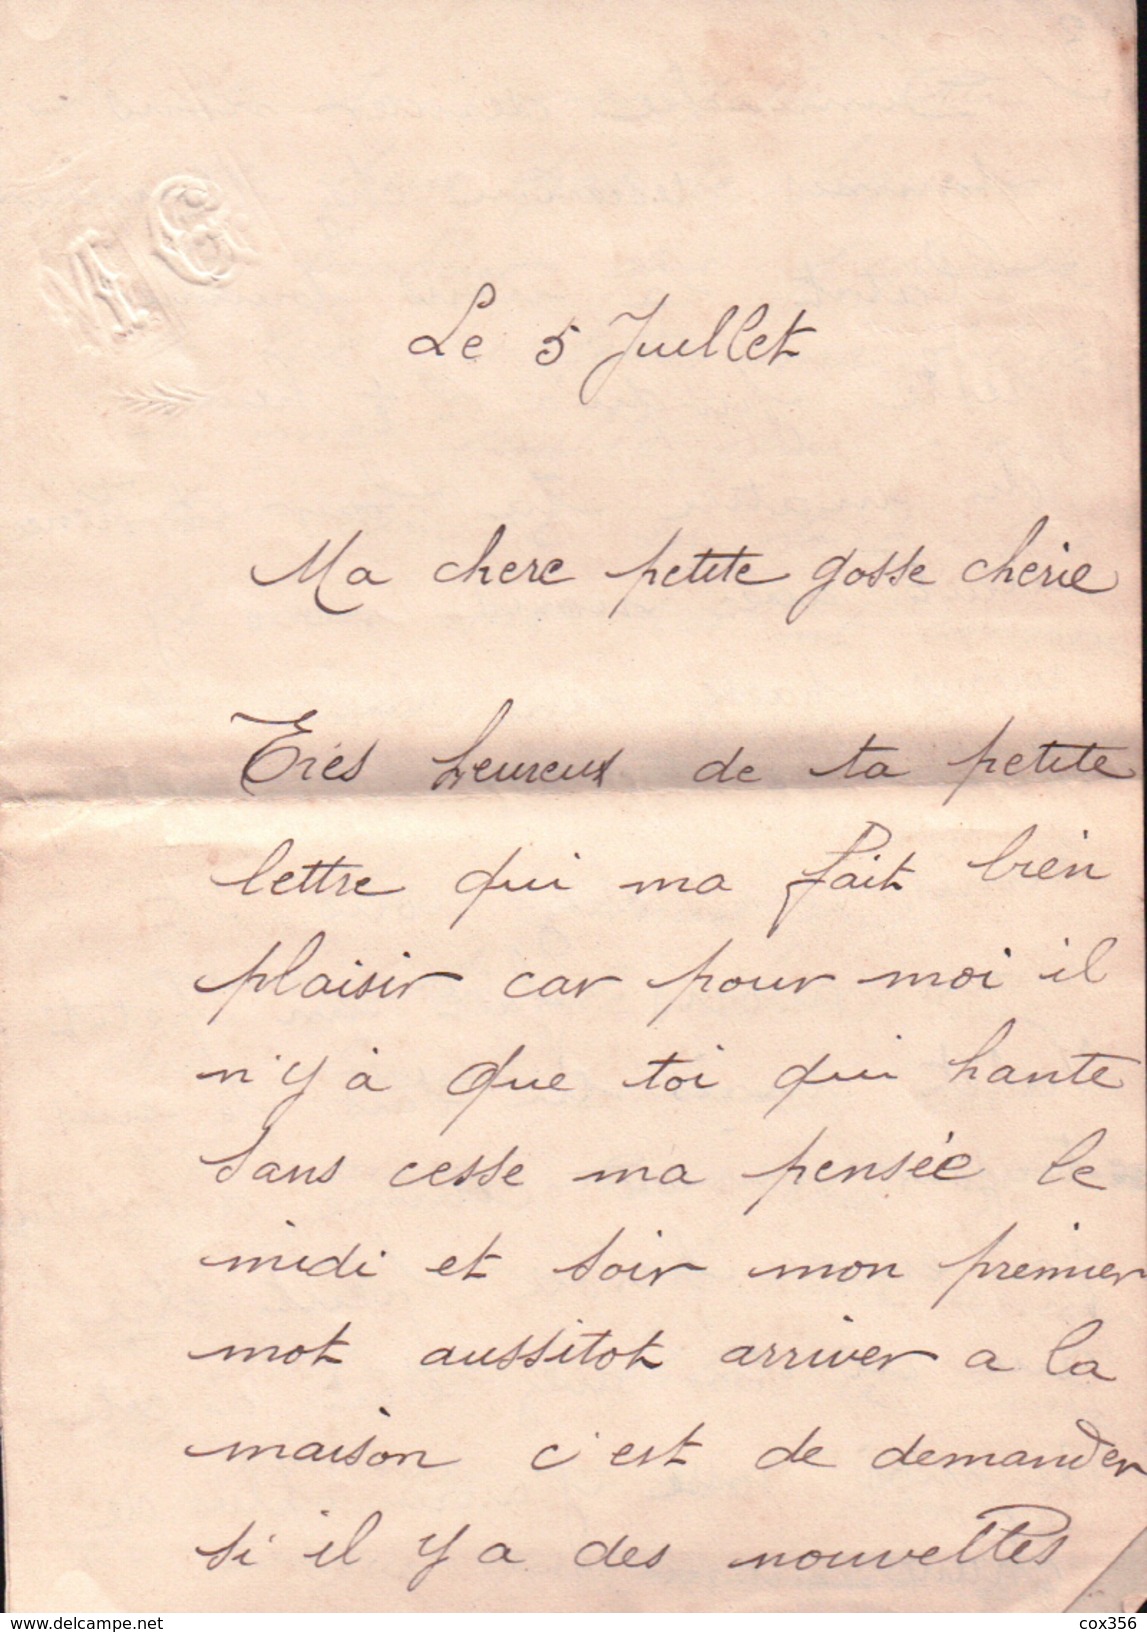 M G
Le 5 Juillet
Ma chere petite gosse cherie
Très heureux de ta petite
lettre qui ma fait bien
plaisir car pour moi il
n'y à que toi qui hante
sans cesse ma pensée le
midi et soir mon premier
mot aussitot arriver a la
maison c'est de demander
si il y a des nouvelles
www.delcampe.net
cox356